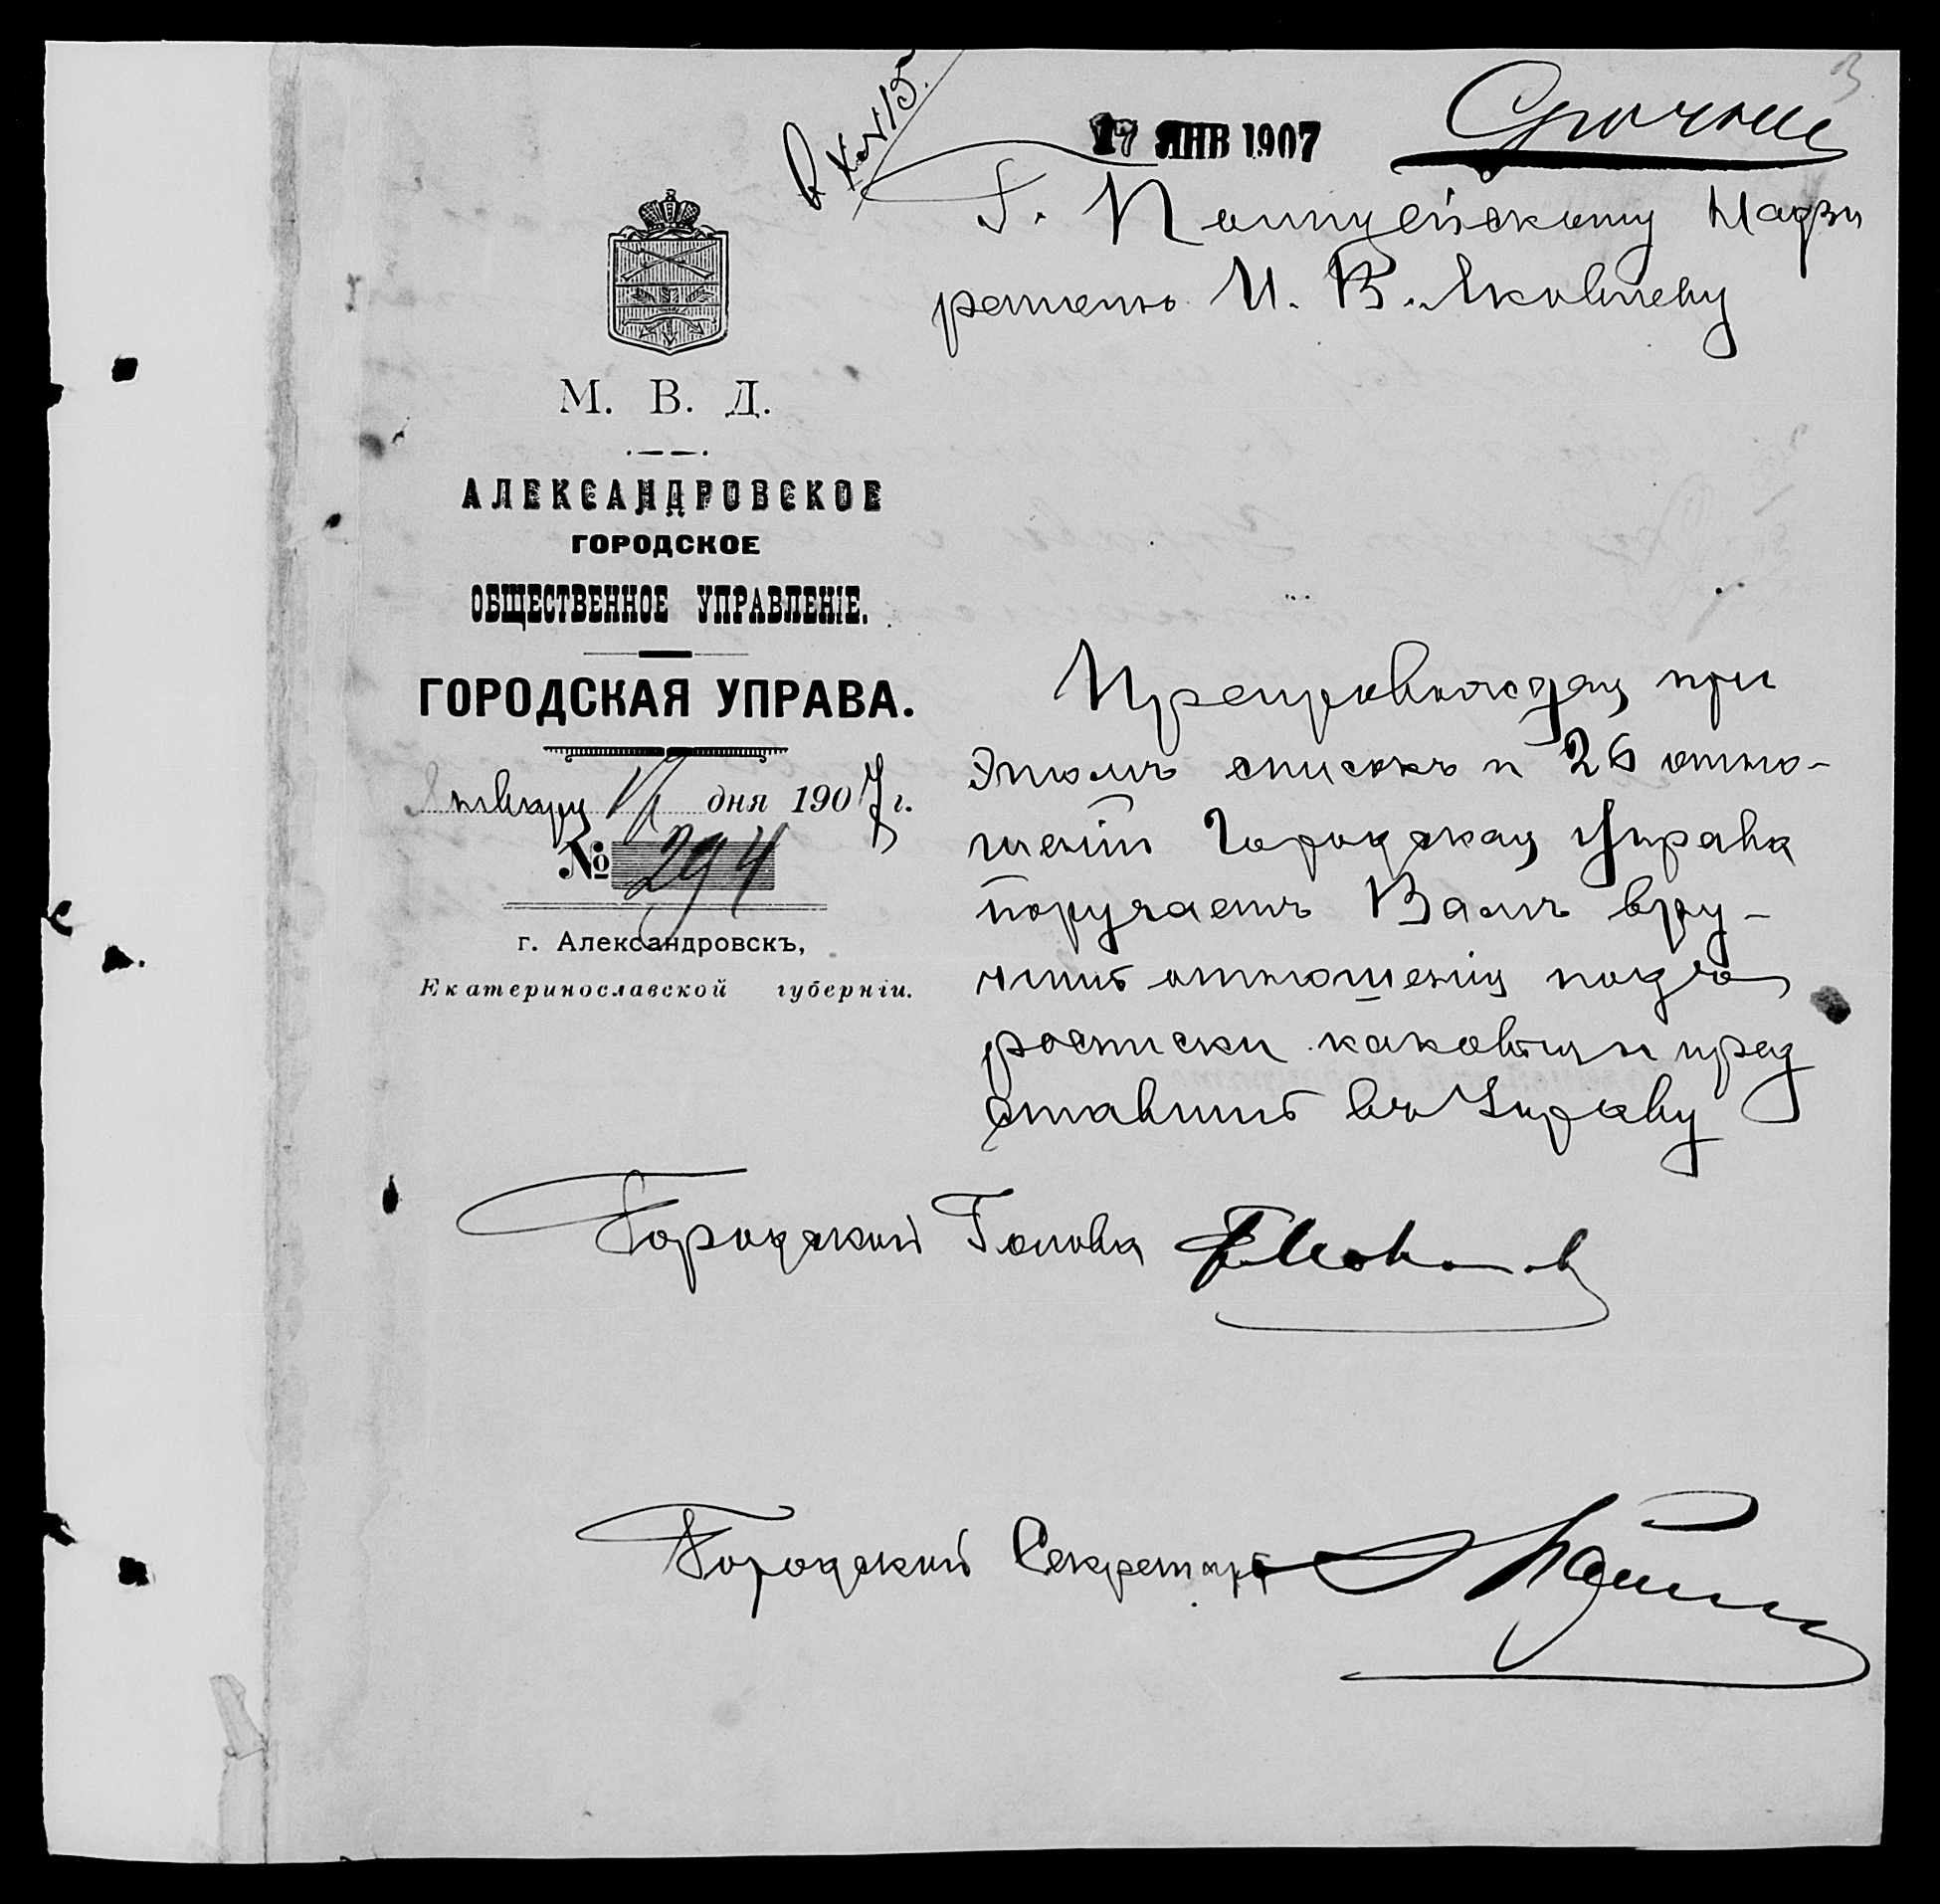 3
Вх №15.
17 ЯНВ 1907
Срочное
Г. Полицейскому Надзи
рателю И. В. Яковлеву
М. В. Д.
АЛЕКСАНДРОВСКОЕ
ГОРОДСКОЕ
ОБЩЕСТВЕННОЕ УПРАВЛЕНІЕ.
ГОРОДСКАЯ УПРАВА.
Января 17 дня 1907 г.
№ 294
г. Александровскъ,
Екатеринославской губерніи.
Препровождая при
этомъ списокъ и 26 отно-
шеній Городская Управа
поручаетъ Вамъ вру-
чить отношенія подъ
росписки каковыя и пред
ставить въ Управу
Городской Голова
Городской Секретарь